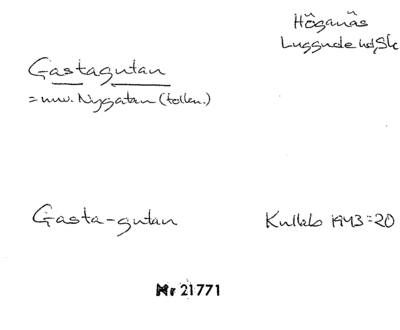 Höganäs
Luggude hd, Sk
Gastagutan
= nuv. Nygatan (tolkn.)
Gasta-gutan
Kullab 1943 = 20
Nr 21771